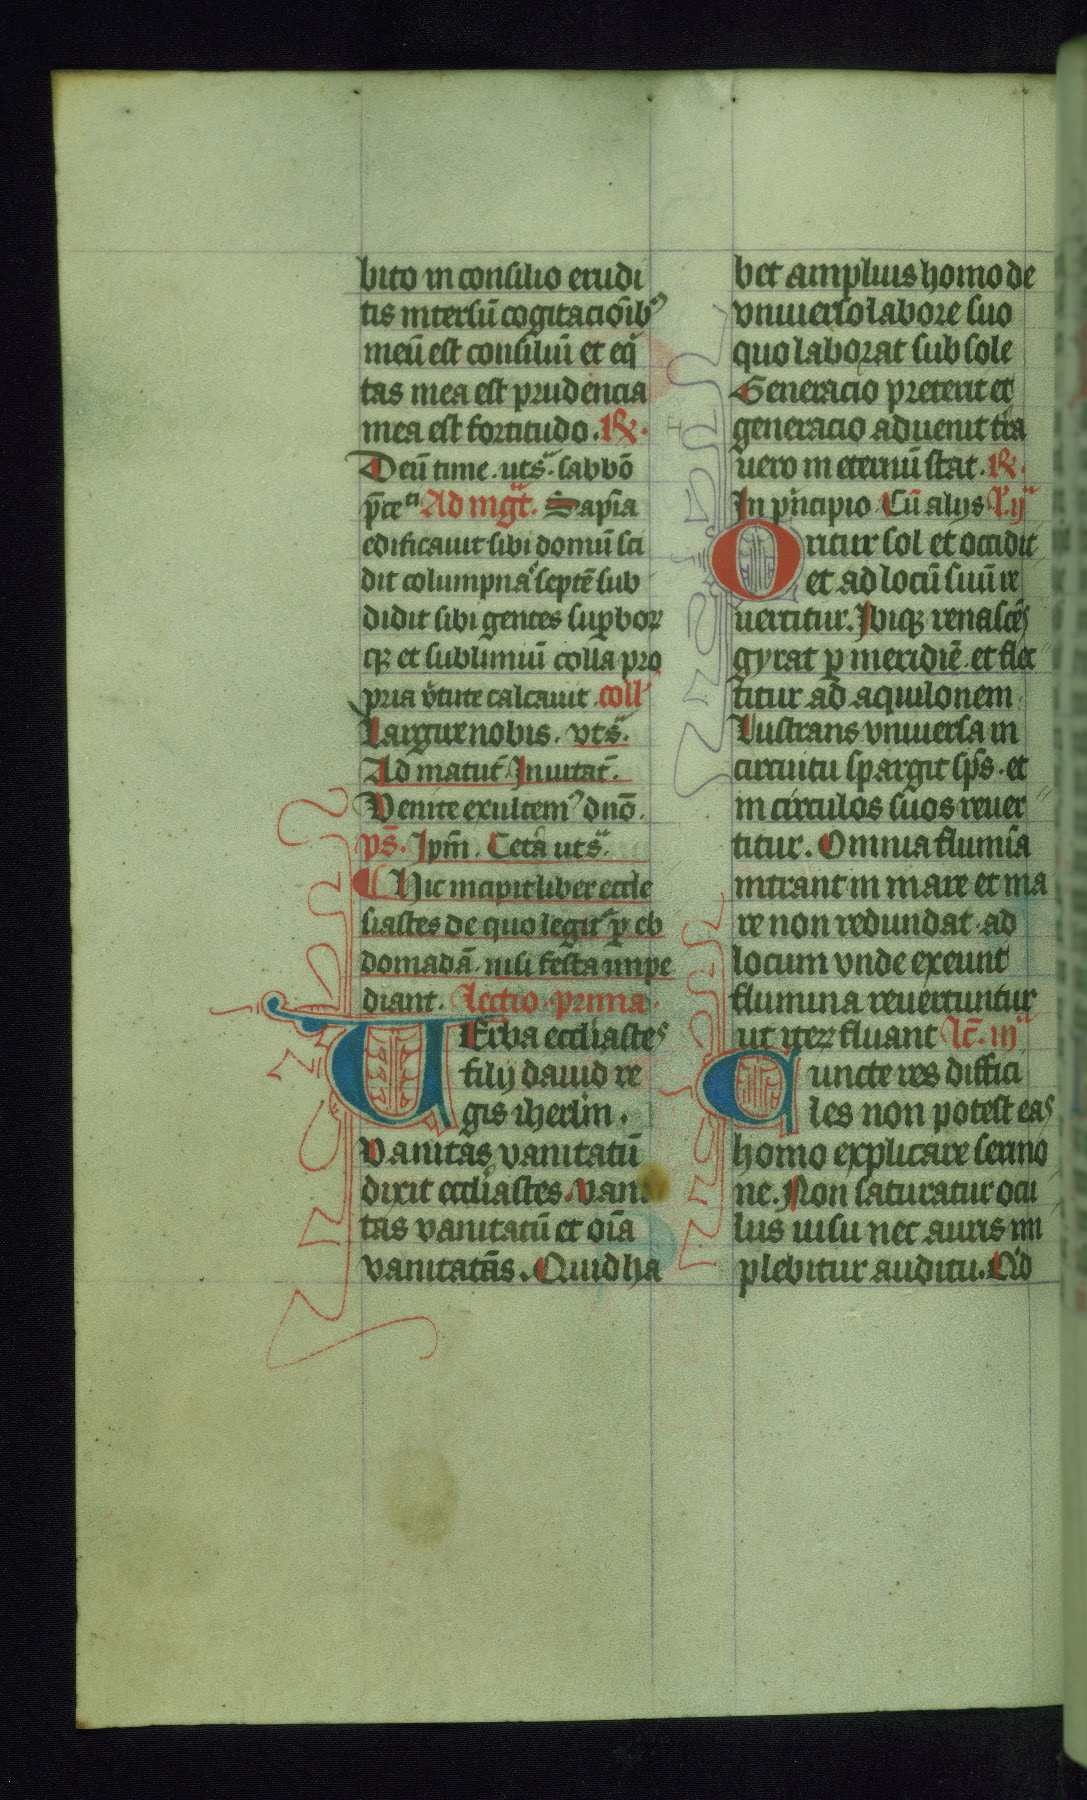 bito in consilio erudi
tis intersū cogitacōib⁹
meū est consiliū et eq̄
tas mea est prudencia
mea est fortitudo. ℟.
Deū time. ut sᵃ. sabbō
p̄ceᵗⁱ Ad mgt̄. Sapīa
edificauit sibi domū sci
dit columpnaˢ septē sub
didit sibi gentes supbor
qꝫ et sublimiū colla pro
pria v̄tute calcauit. coll
Largire nobis. vt sᵃ.
Ad matut̄ Inuitat̄.
Venite exultem⁹ dnō.
ps̄. Ipm̄. Cetᵃ ut sᵃ.
Hic incipit liber eccle
siastes de quo legit̄ ꝑ eb
domadā. nisi festa impe
diant. Lectio prima.
VErba eccl̄iastes
filij dauid re
gis iherlm̄.
Vanitas vanitatū
dixit eccl̄iastes. vani
tas vanitatū et oīa
vanitatās. Quid ha
bet amplius homo de
vniuerso labore suo
quo laborat sub sole
Generacio preterit et
generacio aduenit tr̄a
uero in eternū stat. ℟.
In pⁱncipio Cū alijs L̄. ijᵃ
Oritur sol et occidit
et ad locū suū re
uertitur. Ibiqꝫ renascēs
gyrat ꝑ meridiē. et flec
titur ad aquilonem.
Lustrans vniuersa in
circuitu spargit sp̄s. et
in circulos suos reuer
titur. Omnia flumīa
intrant in mare et ma
re non redundat. ad
locum vnde exeunt
flumina reuertuntur
ut iteꝝ fluant Lc̄. iijᵃ
Cuncte res diffici
les non potest eas
homo explicare sermo
ne. Non saturatur ocu
lus uisu nec auris im
plebitur auditu. Qⁱd